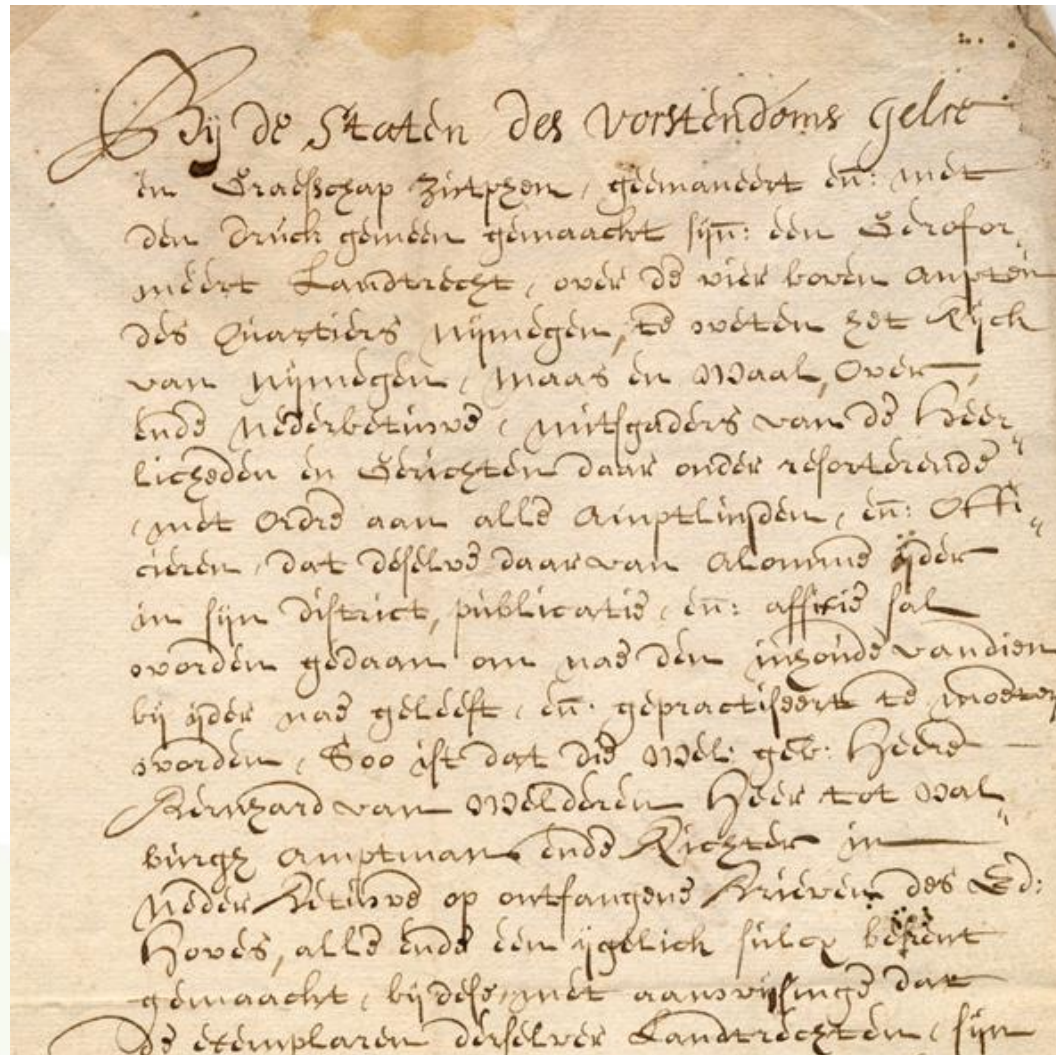 Bij de Staten des vorstendoms Gelre
en Graefschap Zutphen, geemaneert en: met
den druck gemeen gemaackt sijn: een Gerefor„
meert Landtrecht, over de vier boven Ampten
des Quartiers Nijmegen, te weten het Rijck
van Nijmegen, Maas en Waal, Over-
ende Nederbetuwe, mitsgaders van de Heer„
licheden en Gerichten daar onder resorterende
, met Ordre aan alle Amptluijden, en: Offi„
cieren, dat deselve daar van alomme ijder
in sijn district, publicatie, en: affixie sal
worden gedaan om nae den inhoude vandien
bij ijder nae geleeft, en: gepractiseert te moeten
worden, Soo ist dat die Wel: geb: Heere
Bernhard van Welderen Heer tot Wal„
burgh Amptman ende Richter in
Neder Betuwe op ontfangene Brieven des Ed:
Hoves, alle ende een ijgelick sulcx bekent
gemaackt, bij dese, met aanwijsinge dat
De exemplaren derselver Landtrechten, sijn